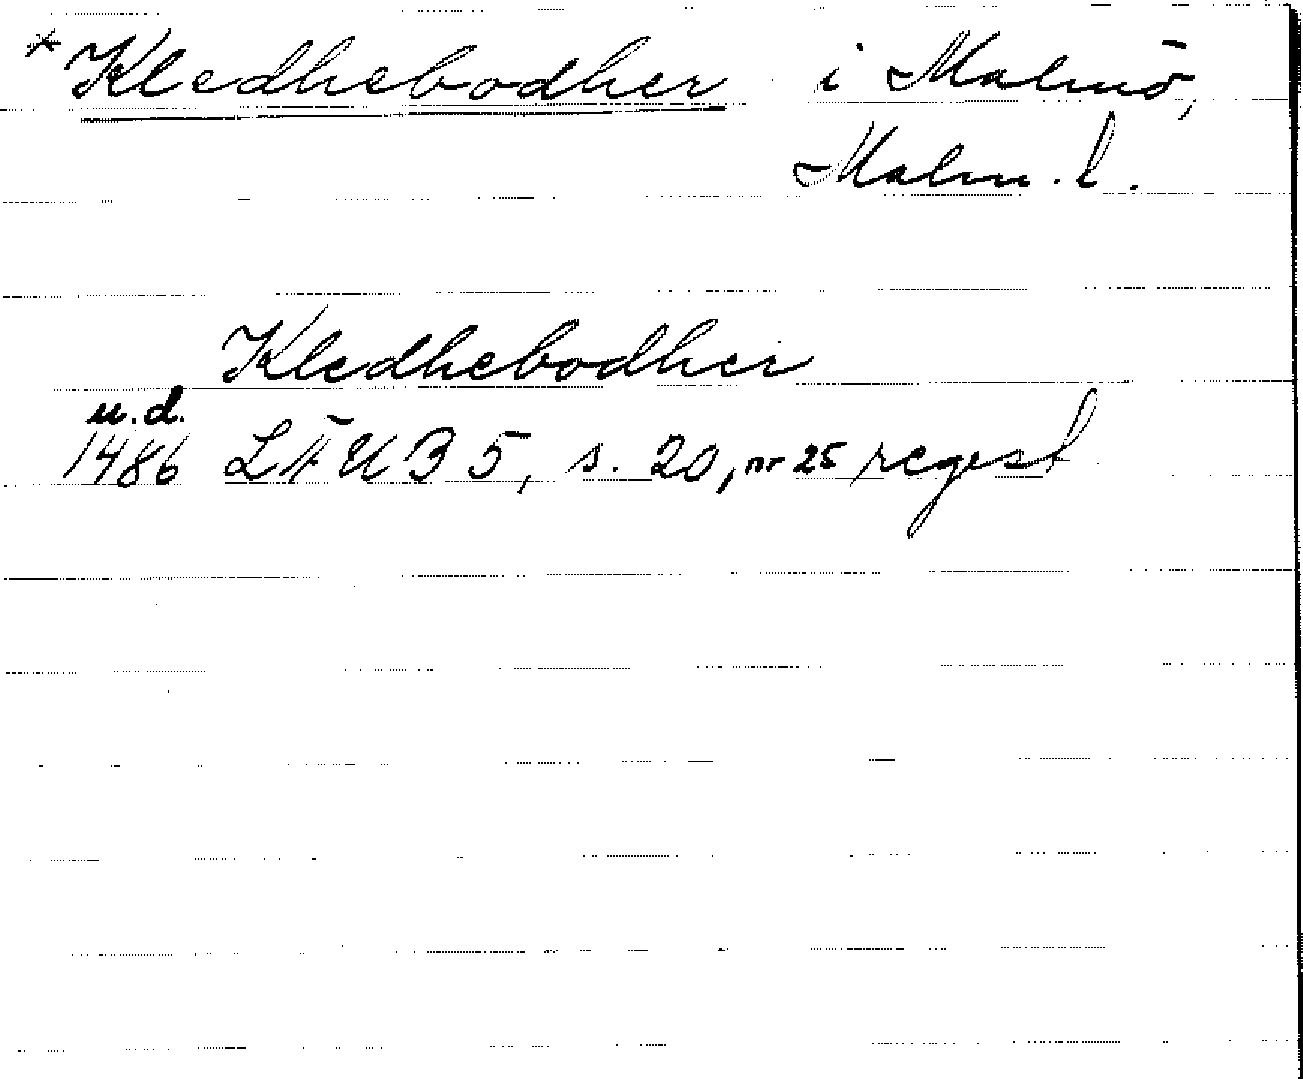 *Kledhebodher i Malmö,
Malm. l.
Kledhebodher
u.d.
1486 LÄUB 5, s. 20, nr 25 regest